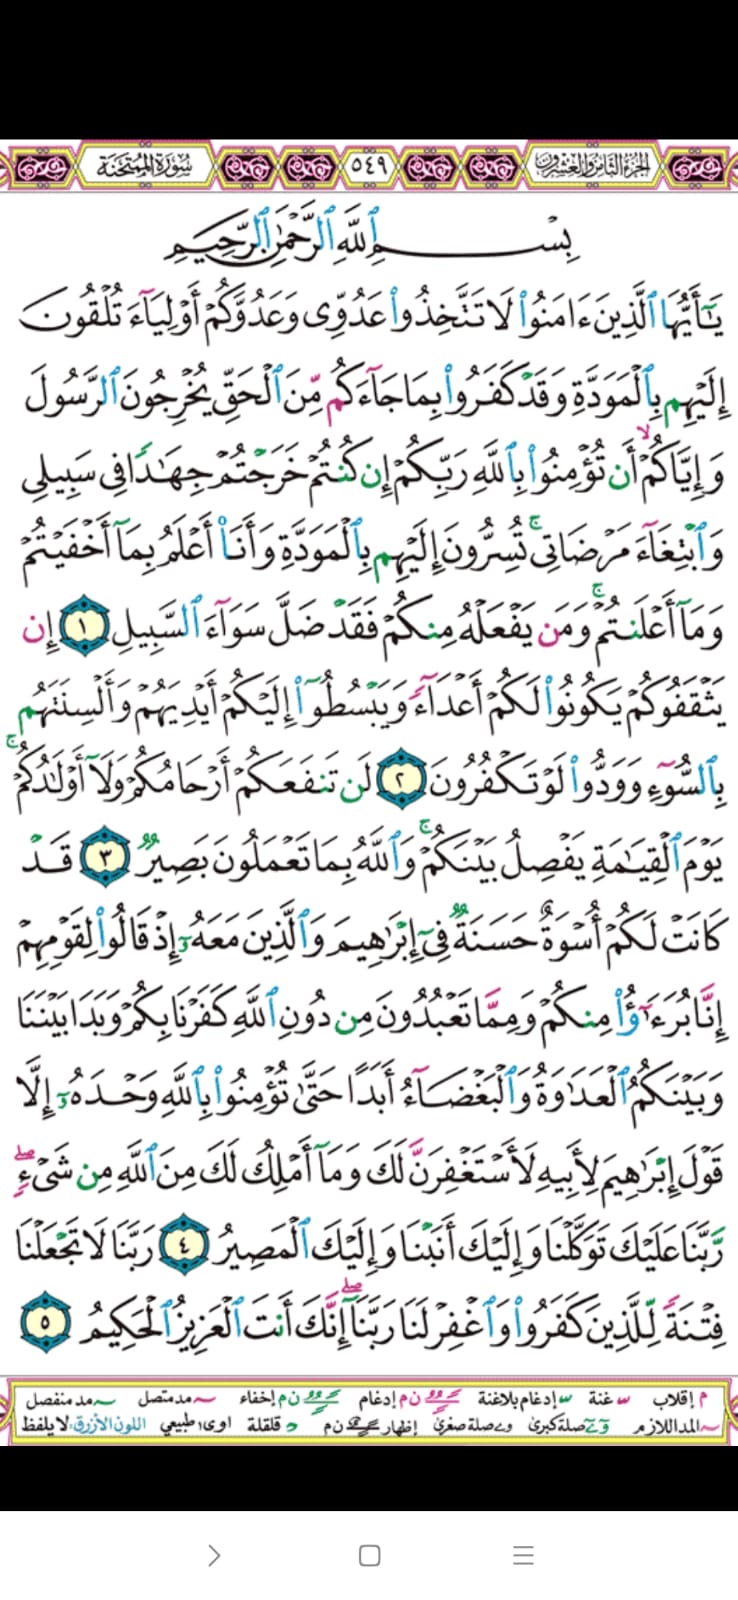 الجزء الثامن والعشرون ٥٤٩ سورة الممتحنة
بِسْمِ ٱللَّهِ ٱلرَّحْمَٰنِ ٱلرَّحِيمِ
يَٰٓأَيُّهَا ٱلَّذِينَ ءَامَنُوا۟ لَا تَتَّخِذُوا۟ عَدُوِّى وَعَدُوَّكُمْ أَوْلِيَآءَ تُلْقُونَ
إِلَيْهِم بِٱلْمَوَدَّةِ وَقَدْ كَفَرُوا۟ بِمَا جَآءَكُم مِّنَ ٱلْحَقِّ يُخْرِجُونَ ٱلرَّسُولَ
وَإِيَّاكُمْ ۙ أَن تُؤْمِنُوا۟ بِٱللَّهِ رَبِّكُمْ إِن كُنتُمْ خَرَجْتُمْ جِهَٰدًا فِى سَبِيلِى
وَٱبْتِغَآءَ مَرْضَاتِى ۚ تُسِرُّونَ إِلَيْهِم بِٱلْمَوَدَّةِ وَأَنَا۠ أَعْلَمُ بِمَآ أَخْفَيْتُمْ
وَمَآ أَعْلَنتُمْ ۚ وَمَن يَفْعَلْهُ مِنكُمْ فَقَدْ ضَلَّ سَوَآءَ ٱلسَّبِيلِ ١ إِن
يَثْقَفُوكُمْ يَكُونُوا۟ لَكُمْ أَعْدَآءً وَيَبْسُطُوٓا۟ إِلَيْكُمْ أَيْدِيَهُمْ وَأَلْسِنَتَهُم
بِٱلسُّوٓءِ وَوَدُّوا۟ لَوْ تَكْفُرُونَ ٢ لَن تَنفَعَكُمْ أَرْحَامُكُمْ وَلَآ أَوْلَٰدُكُمْ ۚ
يَوْمَ ٱلْقِيَٰمَةِ يَفْصِلُ بَيْنَكُمْ ۚ وَٱللَّهُ بِمَا تَعْمَلُونَ بَصِيرٌ ٣ قَدْ
كَانَتْ لَكُمْ أُسْوَةٌ حَسَنَةٌ فِىٓ إِبْرَٰهِيمَ وَٱلَّذِينَ مَعَهُۥٓ إِذْ قَالُوا۟ لِقَوْمِهِمْ
إِنَّا بُرَءَٰٓؤُا۟ مِنكُمْ وَمِمَّا تَعْبُدُونَ مِن دُونِ ٱللَّهِ كَفَرْنَا بِكُمْ وَبَدَا بَيْنَنَا
وَبَيْنَكُمُ ٱلْعَدَٰوَةُ وَٱلْبَغْضَآءُ أَبَدًا حَتَّىٰ تُؤْمِنُوا۟ بِٱللَّهِ وَحْدَهُۥٓ إِلَّا
قَوْلَ إِبْرَٰهِيمَ لِأَبِيهِ لَأَسْتَغْفِرَنَّ لَكَ وَمَآ أَمْلِكُ لَكَ مِنَ ٱللَّهِ مِن شَىْءٍ ۖ
رَّبَّنَا عَلَيْكَ تَوَكَّلْنَا وَإِلَيْكَ أَنَبْنَا وَإِلَيْكَ ٱلْمَصِيرُ ٤ رَبَّنَا لَا تَجْعَلْنَا
فِتْنَةً لِّلَّذِينَ كَفَرُوا۟ وَٱغْفِرْ لَنَا رَبَّنَآ ۖ إِنَّكَ أَنتَ ٱلْعَزِيزُ ٱلْحَكِيمُ ٥
م إقلاب غنة إدغام بلاغنة ن م إدغام ن م إخفاء مد متصل مد منفصل
المد اللازم صلة كبرى صلة صغرى إظهار ن م قلقلة اوى طبيعي اللون الأزرق: لا يلفظ